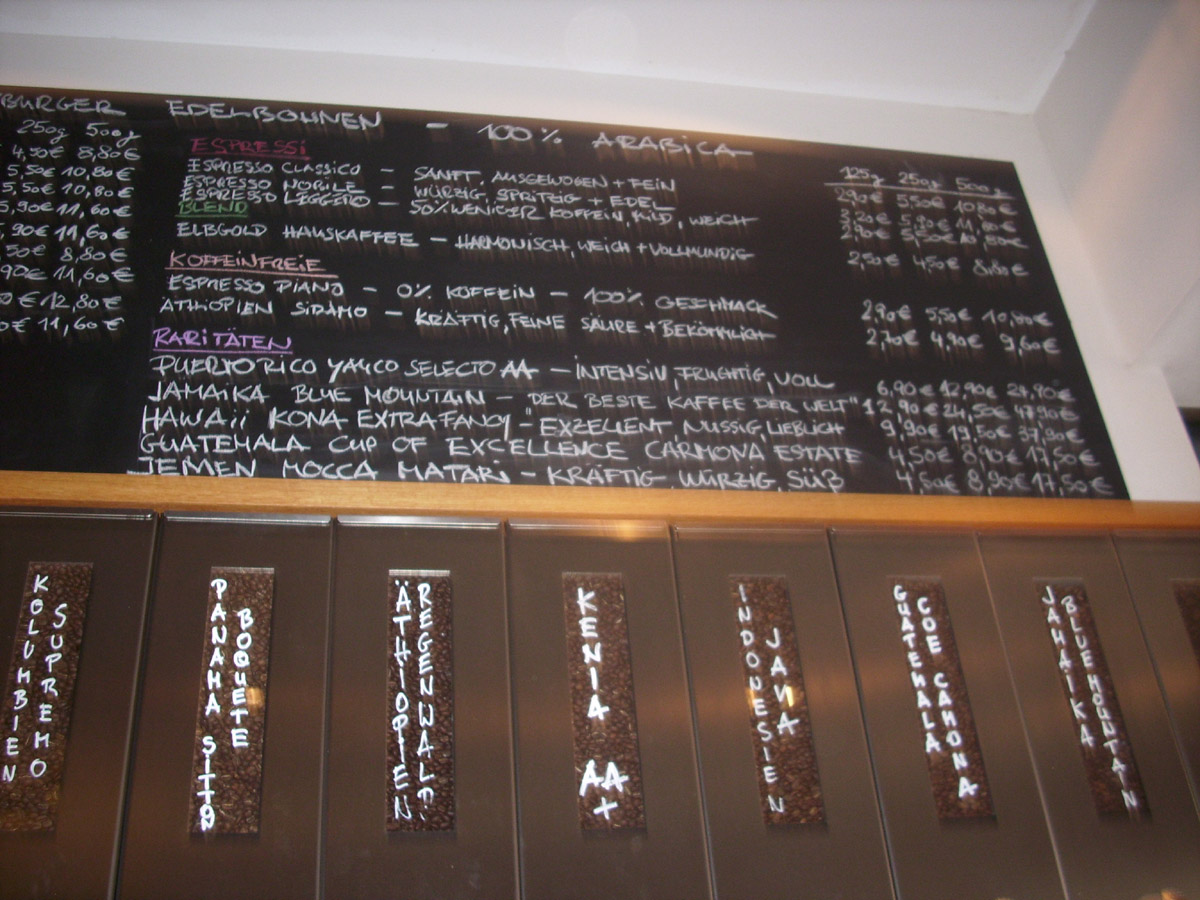 BURGER EDELBOHNEN - 100% ARABICA
250g 500g
4,50€ 8,80€
5,50€ 10,80€
5,50€ 10,80€
5,90€ 11,60€
,90€ 11,60€
,50€ 8,80€
,90€ 11,60€
0€ 12,80€
0€ 11,60€
ESPRESSI 125g 250g 500g
ESPRESSO CLASSICO - SANFT, AUSGEWOGEN + FEIN 2,90€ 5,50€ 10,80€
ESPRESSO NOBILE - WÜRZIG, SPRITZIG + EDEL 3,20€ 5,90€ 11,80€
ESPRESSO LEGGERO - 50% WENIGER KOFFEIN, MILD, WEICH 2,90€ 5,50€ 10,80€
BLEND
ELBGOLD HAUSKAFFEE - HARMONISCH, WEICH + VOLLMUNDIG 2,50€ 4,50€ 8,80€
KOFFEINFREIE
ESPRESSO PIANO - 0% KOFFEIN - 100% GESCHMACK 2,90€ 5,50€ 10,80€
ÄTHIOPIEN SIDAMO - KRÄFTIG, FEINE SÄURE + BEKÖMMLICH 2,70€ 4,90€ 9,60€
RARITÄTEN
PUERTO RICO YAUCO SELECTO AA - INTENSIV, FRUCHTIG, VOLL 6,90€ 12,90€ 24,90€
JAMAIKA BLUE MOUNTAIN - "DER BESTE KAFFEE DER WELT" 12,90€ 24,50€ 47,90€
HAWAII KONA EXTRA FANCY - EXZELLENT NUSSIG, LIEBLICH 9,90€ 19,50€ 37,90€
GUATEMALA CUP OF EXCELLENCE CARMONA ESTATE 4,50€ 8,90€ 17,50€
JEMEN MOCCA MATARI - KRÄFTIG, WÜRZIG, SÜß 4,50€ 8,90€ 17,50€
KOLUMBIEN
SUPREMO
PANAMA SITTO
BOQUETE
ÄTHIOPIEN
REGENWALD
KENIA AA+
INDONESIEN
JAVA
GUATEMALA
COE CAMONA
JAMAIKA
BLUE MOUNTAIN